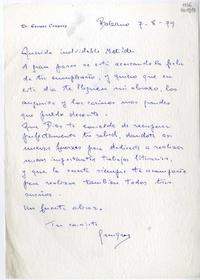 Bolzano 7-8-79
Querida inolvidable Matilde
A gran paso se está acercando la fecha
de tu cumpleaños, y quiero que en
este día te lleguen mi abrazo, los
augurios y los cariños más grandes
que puedo desearte.
Que Dios te conceda de recuperar
perfectamente tu salud, dandote
nuevas fuerzas para dedicarte a realizar
importantes trabajos literarios,
y que la suerte siempre te acompañe
para realizar también todos tus
sueños.
Un fuerte abrazo.
Tu